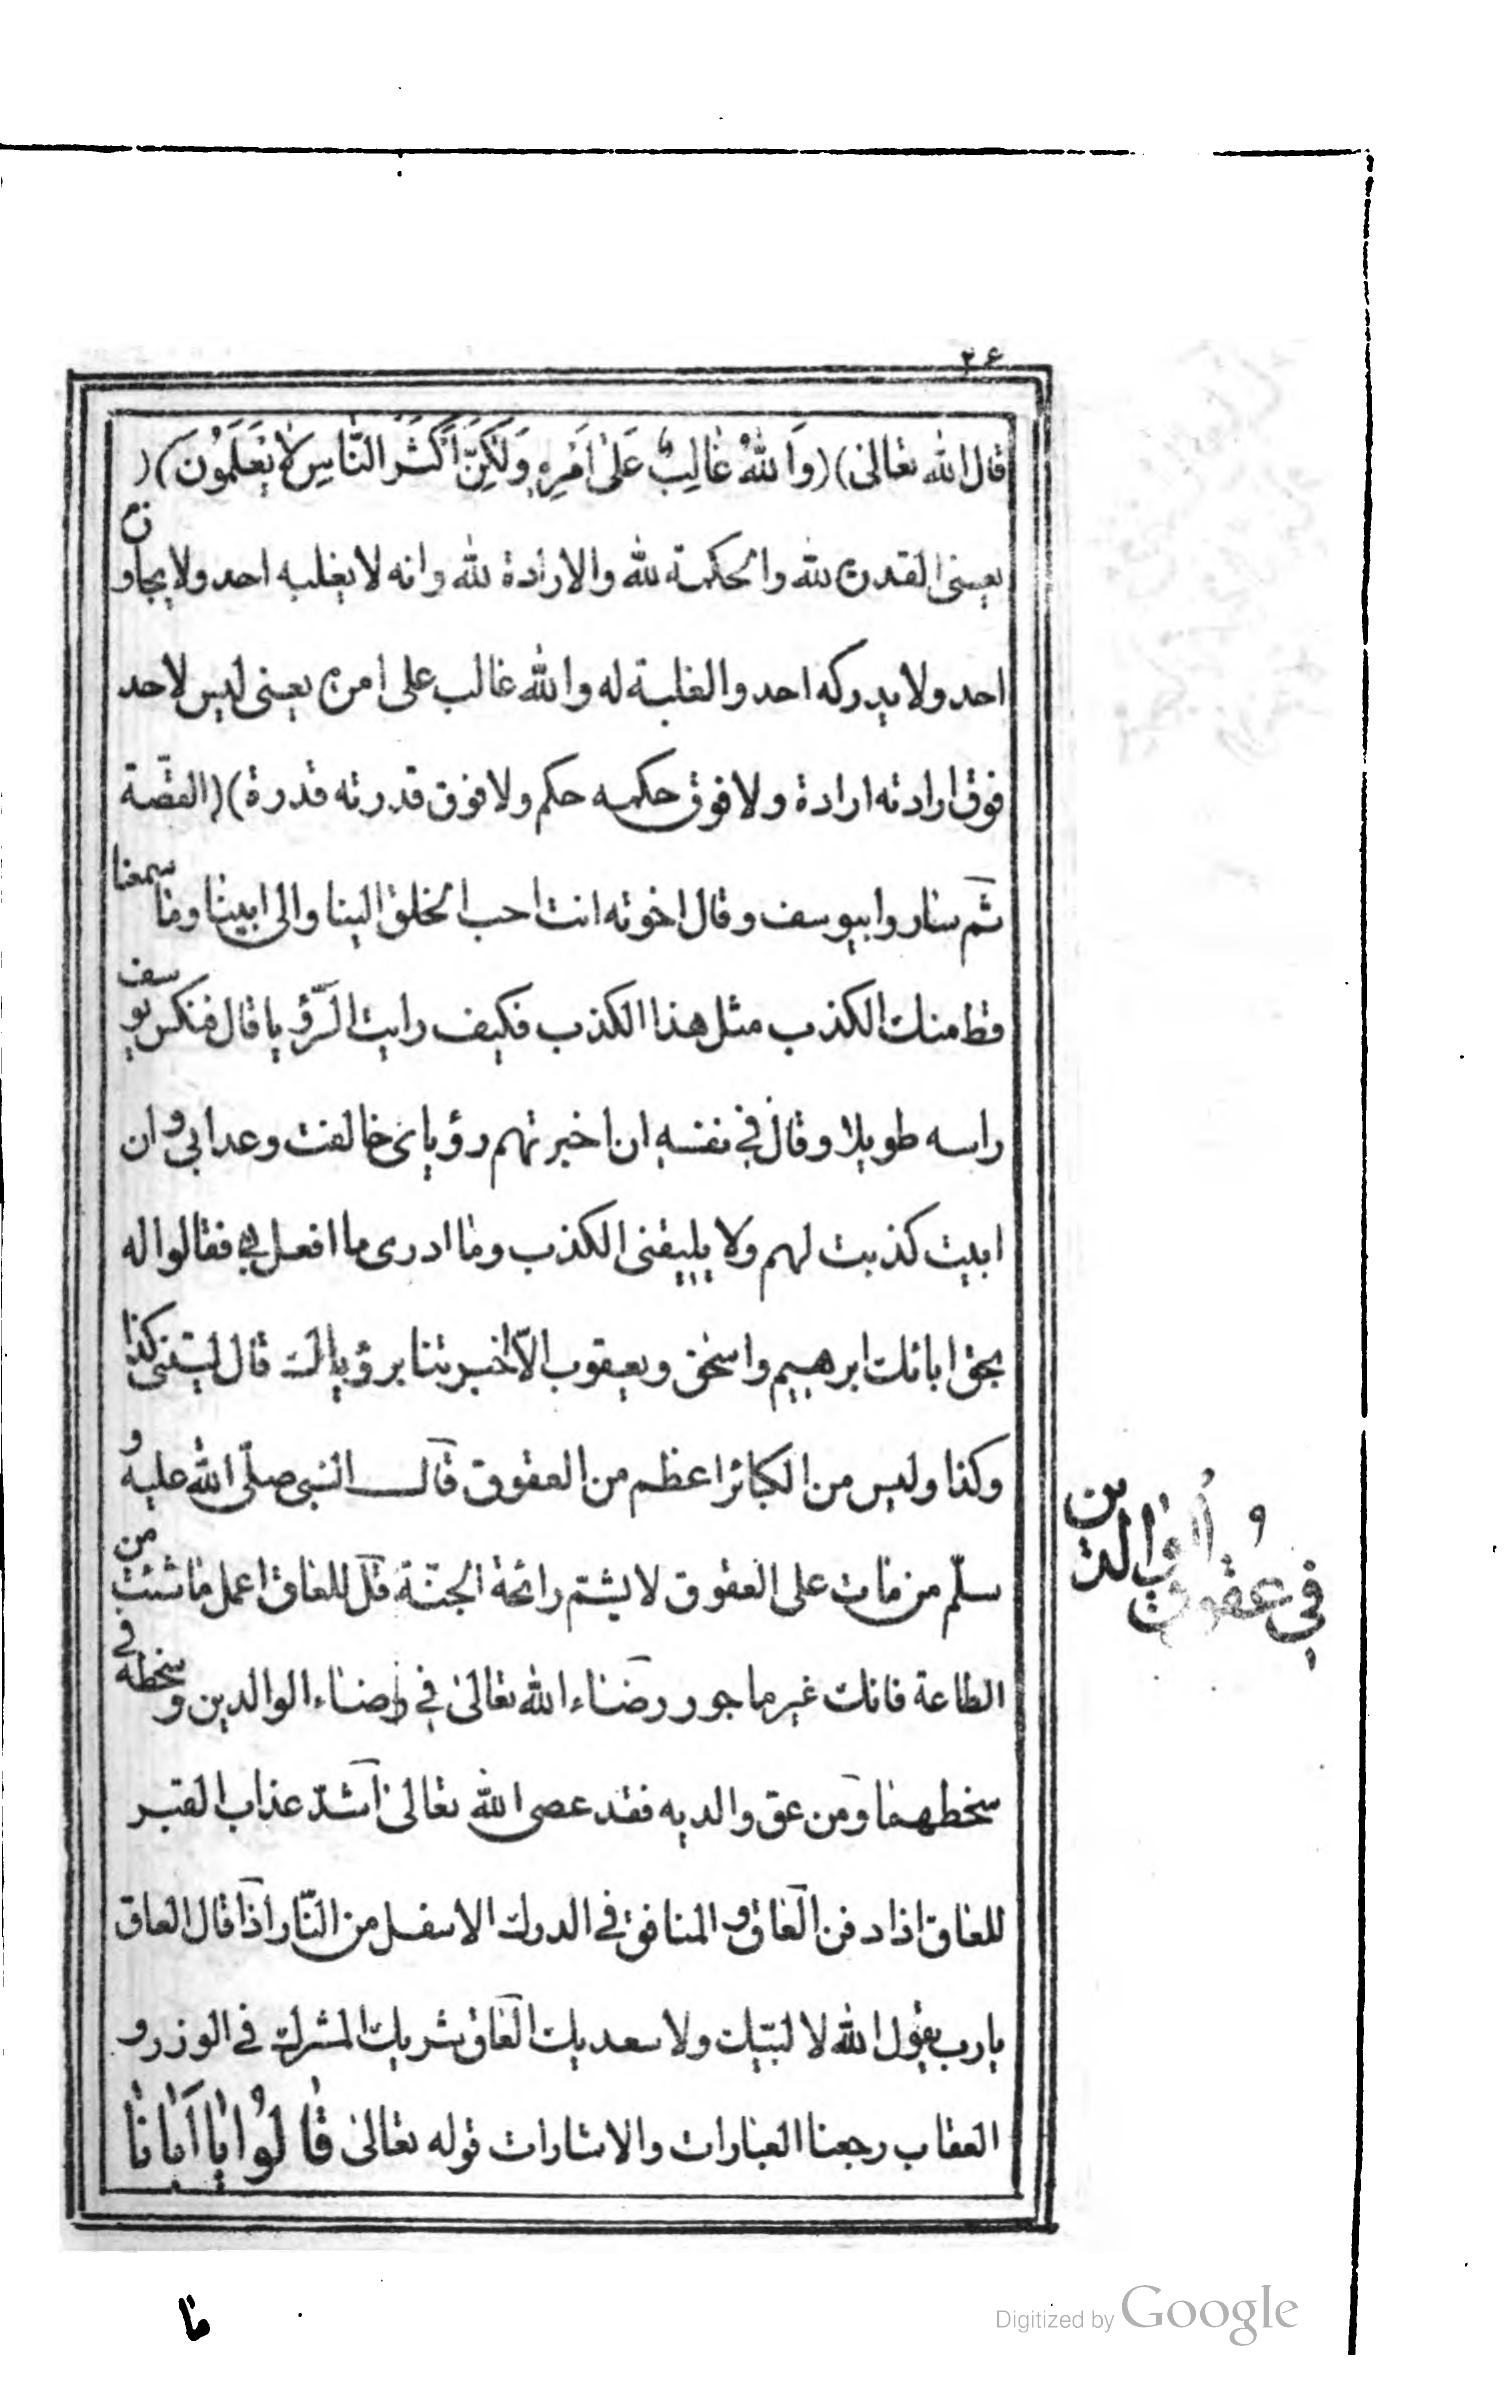 ٢٤
قال الله تعالى) (وَاللّٰهُ غَالِبٌ عَلٰى اَمْرِهٖ وَلٰكِنَّ اَكْثَرَ النَّاسِ لَا يَعْلَمُونَ) (
يعنى القدرة لله والحكمة لله والارادة لله وانه لا يغلبه احد ولا يجاوزه
احد ولا يدركه احد والغلبة له والله غالب على امره يعنى ليس لاحد
فوق ارادته ارادة ولا فوق حكمه حكم ولا فوق قدرته قدرة) (القصّة
ثم ساروا بيوسف وقال اخوته انت احب الخلق الينا والى ابينا وما سمعنا
قط منك الكذب مثل هذا الكذب فكيف رايت الرّؤيا قال فنكس يوسف
راسه طويلا وقال فى نفسه ان اخبرتهم رؤياى خالفت وعد ابى وان
ابيت كذبت لهم ولا يليقنى الكذب وما ادرى ما افعل فى فقالوا له
بحق ابائك ابرهيم واسحق ويعقوب الّا اخبرتنا برؤياك قال ليتنى كذا
وكذا وليس من الكبائر اعظم من العقوق قال النبى صلّى الله عليه و
سلّم من مات على العقوق لا يشتم رائحة الجنّة قل للعاق اعمل ما شئت من
الطاعة فانك غير ماجور رضاء الله تعالى فى رضاء الوالدين وسخطه فى
سخطهما ومن عق والديه فقد عصى الله تعالى اشدّ عذاب القبر
للعاق اذا دفن العاق والمنافق فى الدرك الاسفل من النّار اذا قال العاق
يارب يقول الله لا لبّيك ولا سعديك العاق شريك المشرك فى الوزر و
العقاب رجعنا العبارات والاشارات قوله تعالى قَالُوا يَا اَبَانَا
فى عقوق الوالدين
ما
Digitized by Google